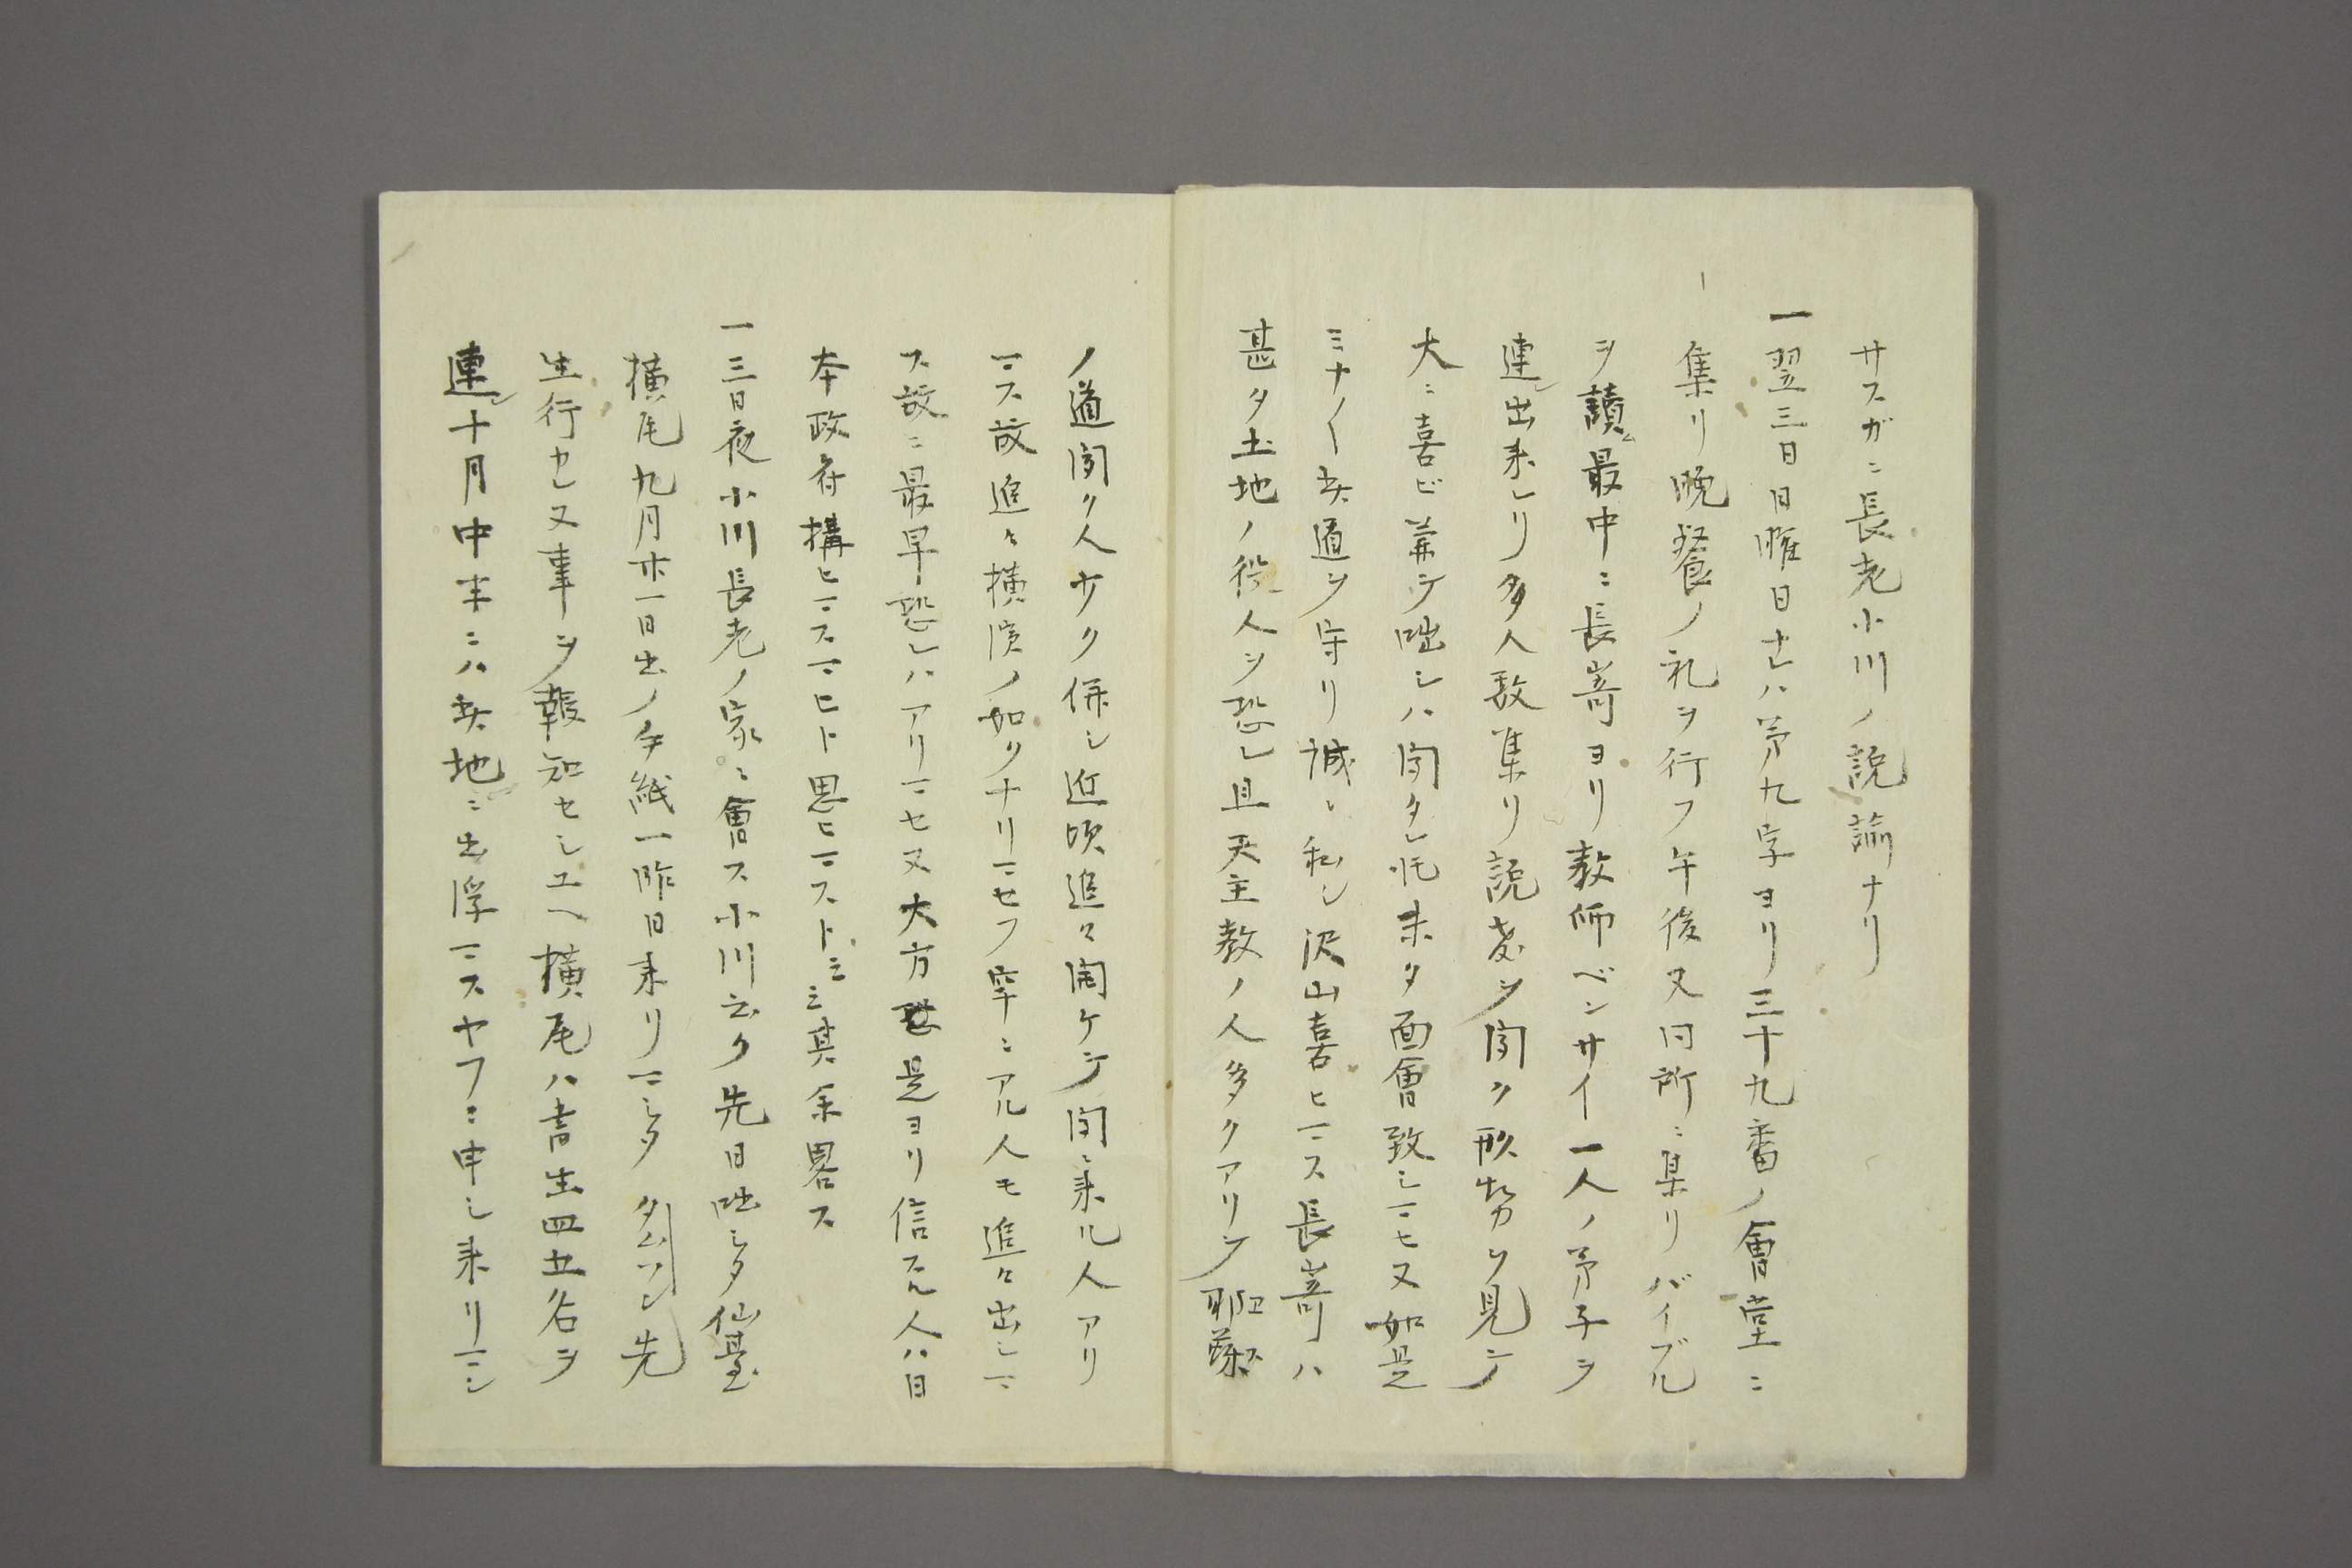 サスガニ長老小川ノ説諭ナリ
一翌三日日曜日ナレハ第九字ヨリ三十九番ノ會堂ニ
集リ晩餐ノ礼ヲ行フ午後又同所ニ集リバイブル
ヲ讀ム最中ニ長嵜ヨリ教師ベンサイ一人ノ弟子ヲ
連レ出来レリ多人数集リ説教ヲ聞ク形勢ヲ見テ
大ニ喜ビ兼テ咄シハ聞タレ𪜈未タ面會致シマセヌ如是
ミナ〱此道ヲ守リ誠ニ私シ沢山喜ヒマス長嵜ハ
甚タ土地ノ役人ヲ恐レ且天主教ノ人多クアリテ耶蘇
ノ道聞ク人少ク併シ近頃追々開ケテ聞ニ来ル人アリ
マス故追々横濱ノ如クナリマセフ牢ニアル人モ追々出シマ
ス故ニ最早恐レハアリマセヌ大方是ヨリ信スル人ハ日
本政府構ヒマスマヒト思ヒマスト云云其余畧ス
一三日夜小川長老ノ家ニ會ス小川云ク先日咄シタ仙臺
横尾九月廿一日出ノ手紙一昨日来リマシタタムソン先
生行カレヌ事ヲ報知セシユヘ横尾ハ書生四五名ヲ
連レ十月中末ニハ此地ニ出浮マスヤフニ申シ来リマシ